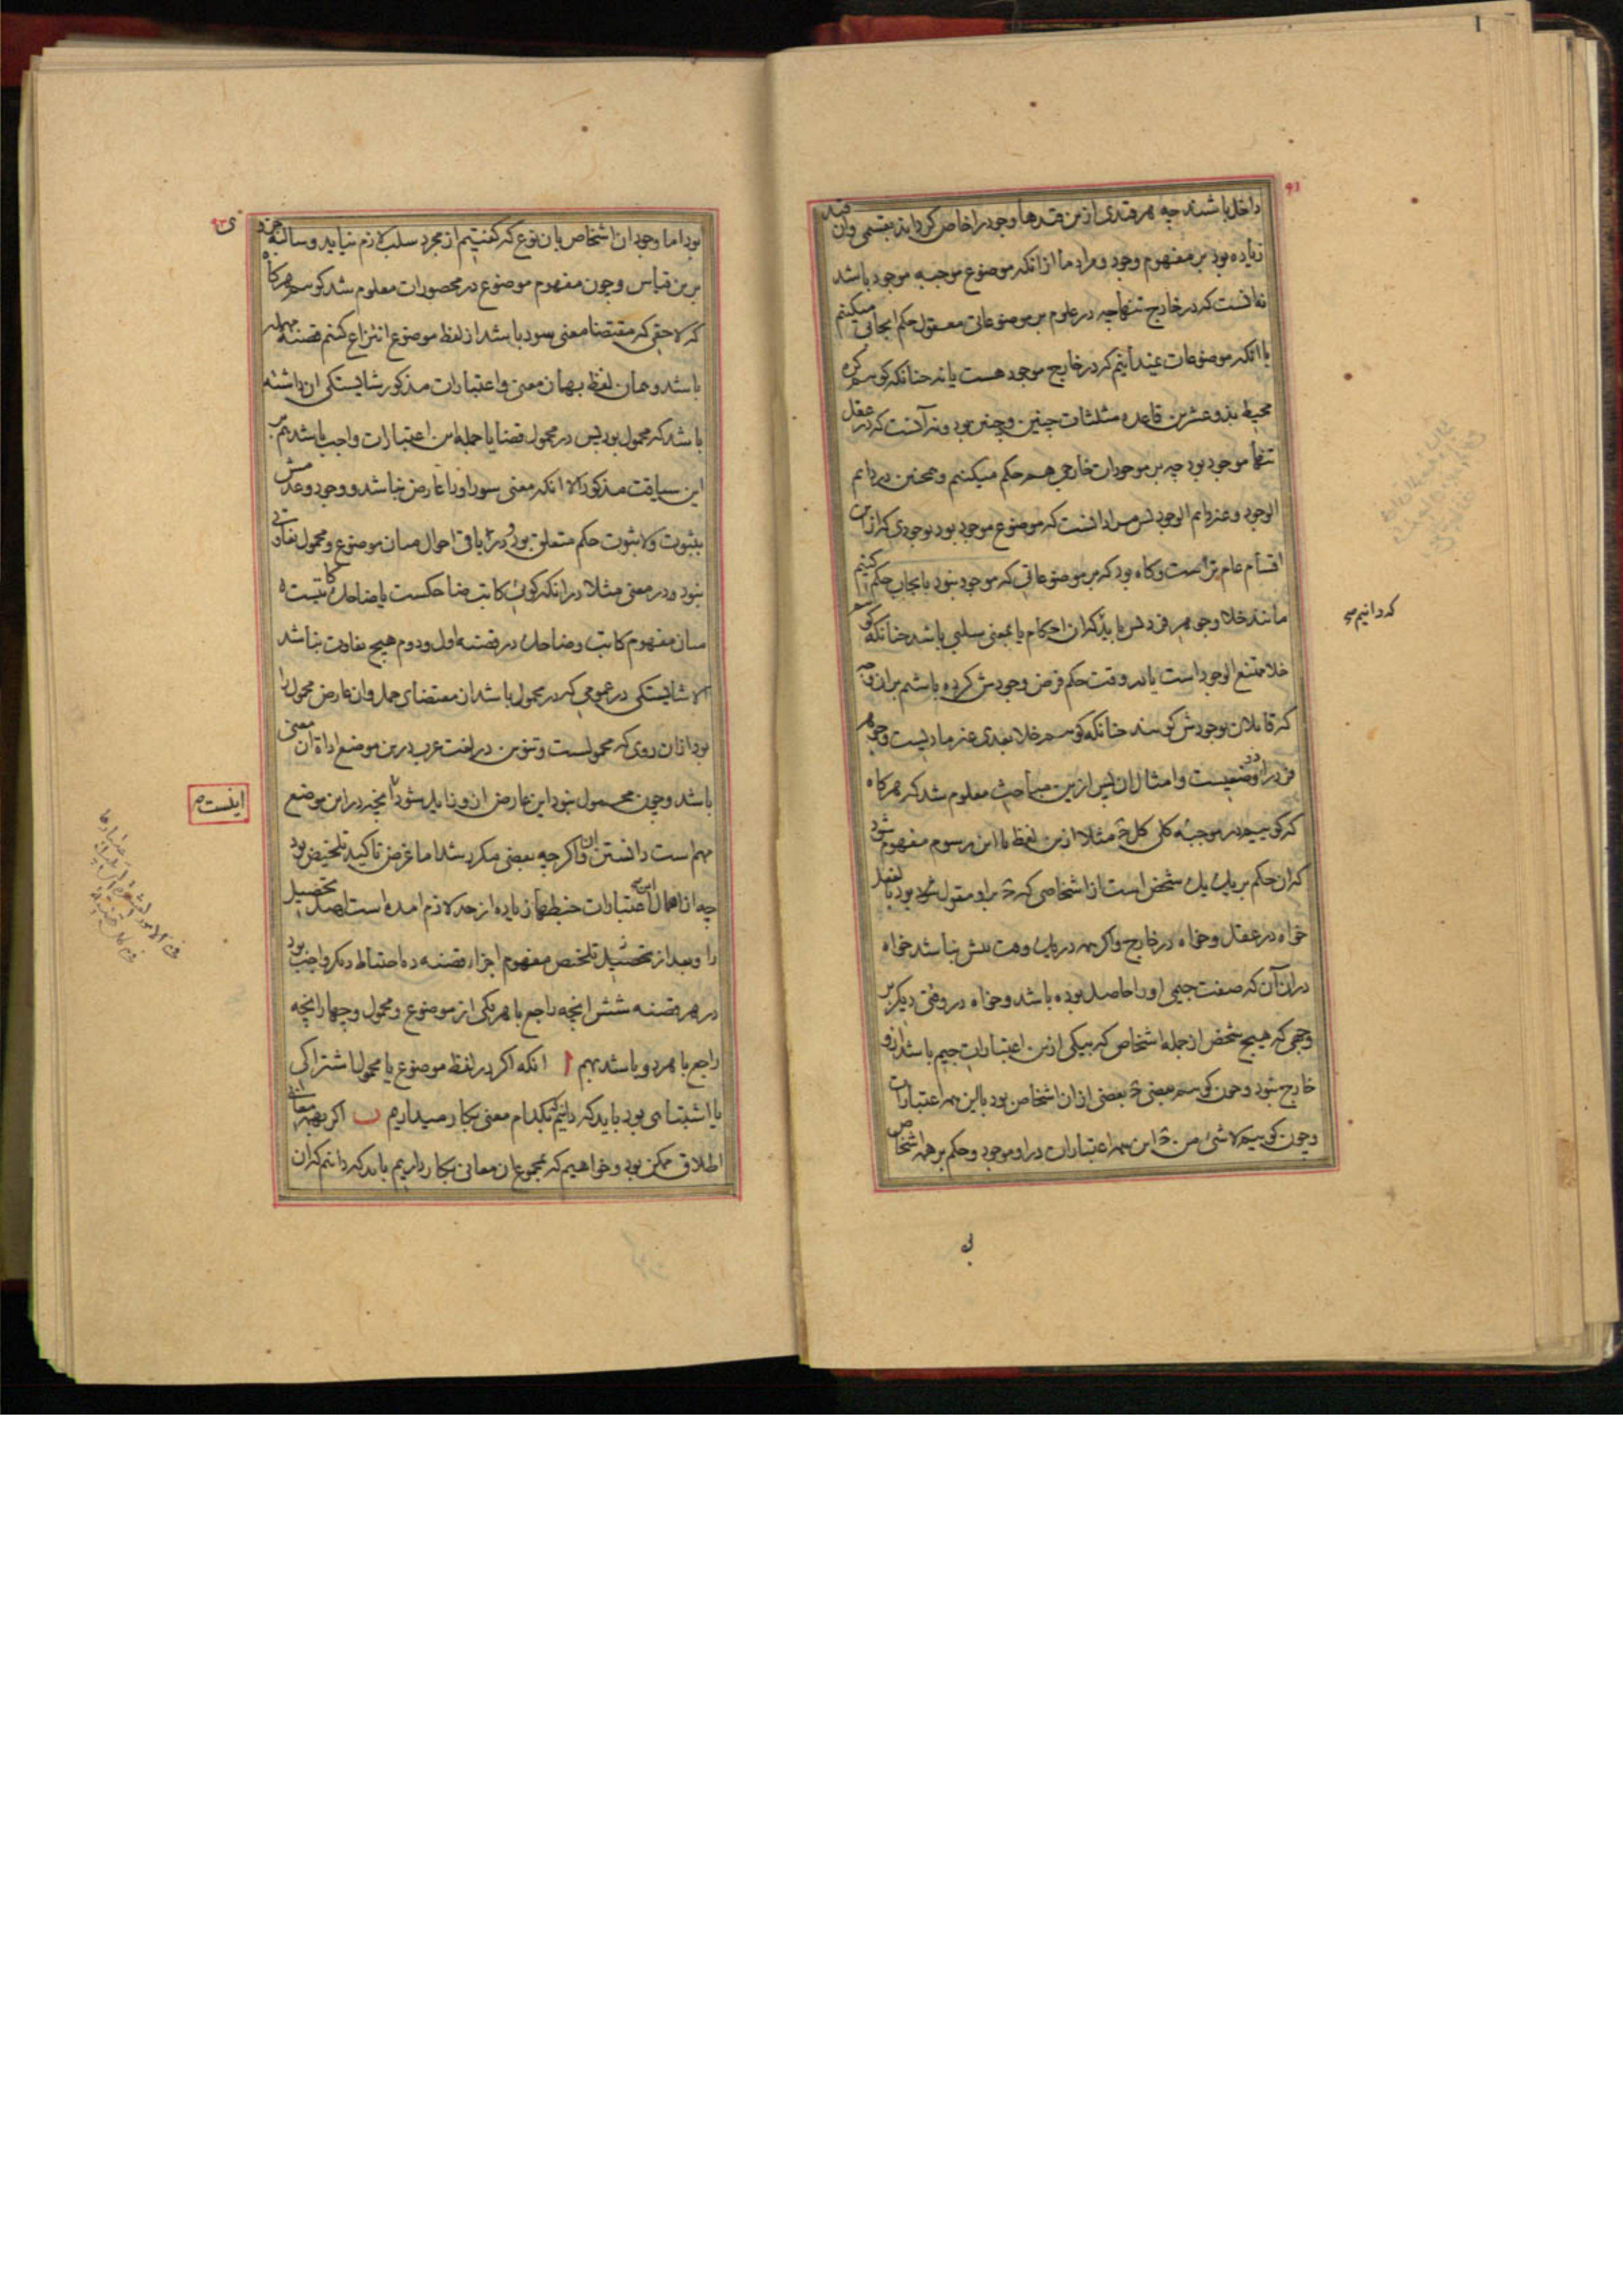 ۹۱
داخل باشند چه هر قیدی ازین قیدها وجود را خاص گرداند بقسمی وان قید
زیاده بود بر مفهوم وجود و مراد ما ازانکه موضوع موجبه موجود باشد
نه انست که در خارج تنها چه در علوم بر موضوعاتی معقول حکم ایجابی میکنیم
با انکه موضوعات نمیدانیم که در خارج موجود هست یا نه چنانکه کوییم کره
محیط بذو عشرین قاعده مثلثات چنین و چنین بود و نه آنست که در عقل
تنها موجود بود چه بر موجودات خارجی هم حکم میکنیم و همچنین در دایم
الوجود و غیر دایم الوجود پس مراد انست که موضوع موجود بود بوجودی که ازین
اقسام عام تر است و کاه بود که بر موضوعاتی که موجود نبود بایجاب حکم کنیم
مانند خلا و جوهر فرد پس باید که ان احکام یا بمعنی سلبی باشد چنانکه کوییم
خلا ممتنع الوجود است یا در وقت حکم فرض وجودش کرده باشیم بران وجه
که قایلان بوجودش کویند چنانکه کوییم خلا بعدی غیر مادیست و جوهر
فرد ذو وضعیست و امثال ان پس ازین مباحث معلوم شد که هرکاه
که کوییم در موجبه کلی کل ج مثلا ازین لفظ با این رسوم مفهوم شود
که ان حکم بر یک یک شخص است از اشخاصی که ج برو مقول بود بالفعل
خواه در عقل و خواه در خارج واکرچه در یک وقت بیش نباشد خواه
دران آن که صفت جیمی او را حاصل بوده باشد و خواه در وقتی دیکر بر
وجهی که هیچ شخص از جمله اشخاص که بیکی ازین اعتبارات جیم باشد ازو
خارج نبود و چون کوییم بعضی ج بعضی ازان اشخاص بود با این همه اعتبارات
و چون کوییم لاشئ من ج این همه اعتبارات درو موجود و حکم بر همه اشخاص
که دانیم صح
۹۲
بود اما وجود ان اشخاص بان نوع که کفتیم از مجرد سلب لازم نیاید و سالبه جزوی
برین قیاس و چون مفهوم موضوع در محصورات معلوم شد کوییم هرکاه
که لاحقی که مقتضا معنی سور باشد از لفظ موضوع انتزاع کنیم قضیه مهمله
باشد و همان لفظ بهمان معنی و اعتبارات مذکور شایستکی ان داشته
باشد که محمول بود پس در محمول قضایا جمله این اعتبارات واجب باشد هم بر
این سیاقت مذکور الا انکه معنی سور او را عارض نباشد و وجود و عدمش
بثبوت و لا ثبوت حکم متعلق بود و در باقی احوال میان موضوع و محمول تفاوتی
نبود و در معنی مثلا در انکه کویی کاتب ضاحکست یا ضاحک کاتبست
میان مفهوم کاتب و ضاحک در قضیه اول و دوم هیچ تفاوت نباشد
الا شایستکی در عمومی که در محمول باشد ان مقتضای حمل و ان عارض محمول را
بود ازان روی که محمولست و تنوین در لغت عرب درین موضع اداة ان معنی
باشد و چون محمول نبود این عارض ازو زایل شود انچه درین موضع
مهم است دانستن ان واکر چه بعضی مکرر شد اما غرض تاکید تلخیص بود
چه از اهمال این اعتبارات خبطهای زیاده از حد لازم امده است اهل تحصیل
را و بعد از تحصیل تلخیص مفهوم اجزاء قضیه ده احتیاط دیکر واجب بود
در هر قضیه شش انچه راجع با هر یکی از موضوع و محمول و چهار انچه
راجع با هر دو باشد بهم ا انکه اکر در لفظ موضوع یا محمول اشتراکی
یا اشتباهی بود باید که دانیم که بکدام معنی بکار میداریم ب اکر بهمه معانی
اطلاق ممکن بود و خواهیم که مجموع ان معانی بکار داریم باید که دانیم که ان
اینست ص